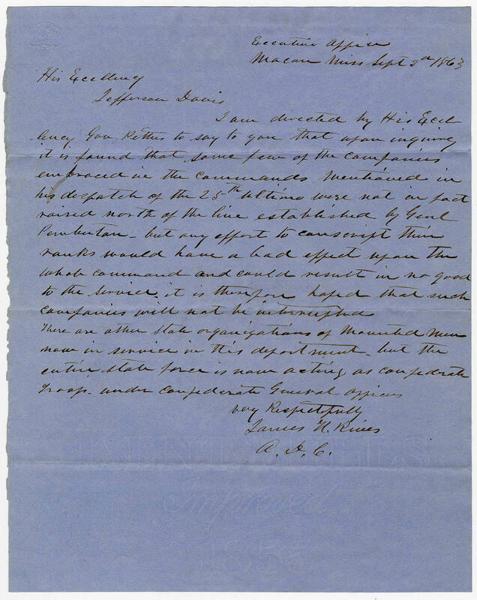 Executive Office
Macon Miss Sept 3rd 1863
His Excellency
Jefferson Davis
I am directed by His Excel
lency Gov Pettus to say to you that upon inquiry
it is found that some few of the companies
embraced in the commands mentioned in
his despatch of the 25th Ultimo were not in fact
raised north of the line established by Genl
Pemberton - but any effort to conscript their
ranks would have a bad effect upon the
whole command and could result in no good
to the service, it is therefore hoped that such
companies will not be interrupted
There are other State organizations of Mounted Men
now in service in this department - but the
entire State force is now acting as confederate
Troops - under confederate General officers
very Respectfully
James H. Rives
A. D. C.